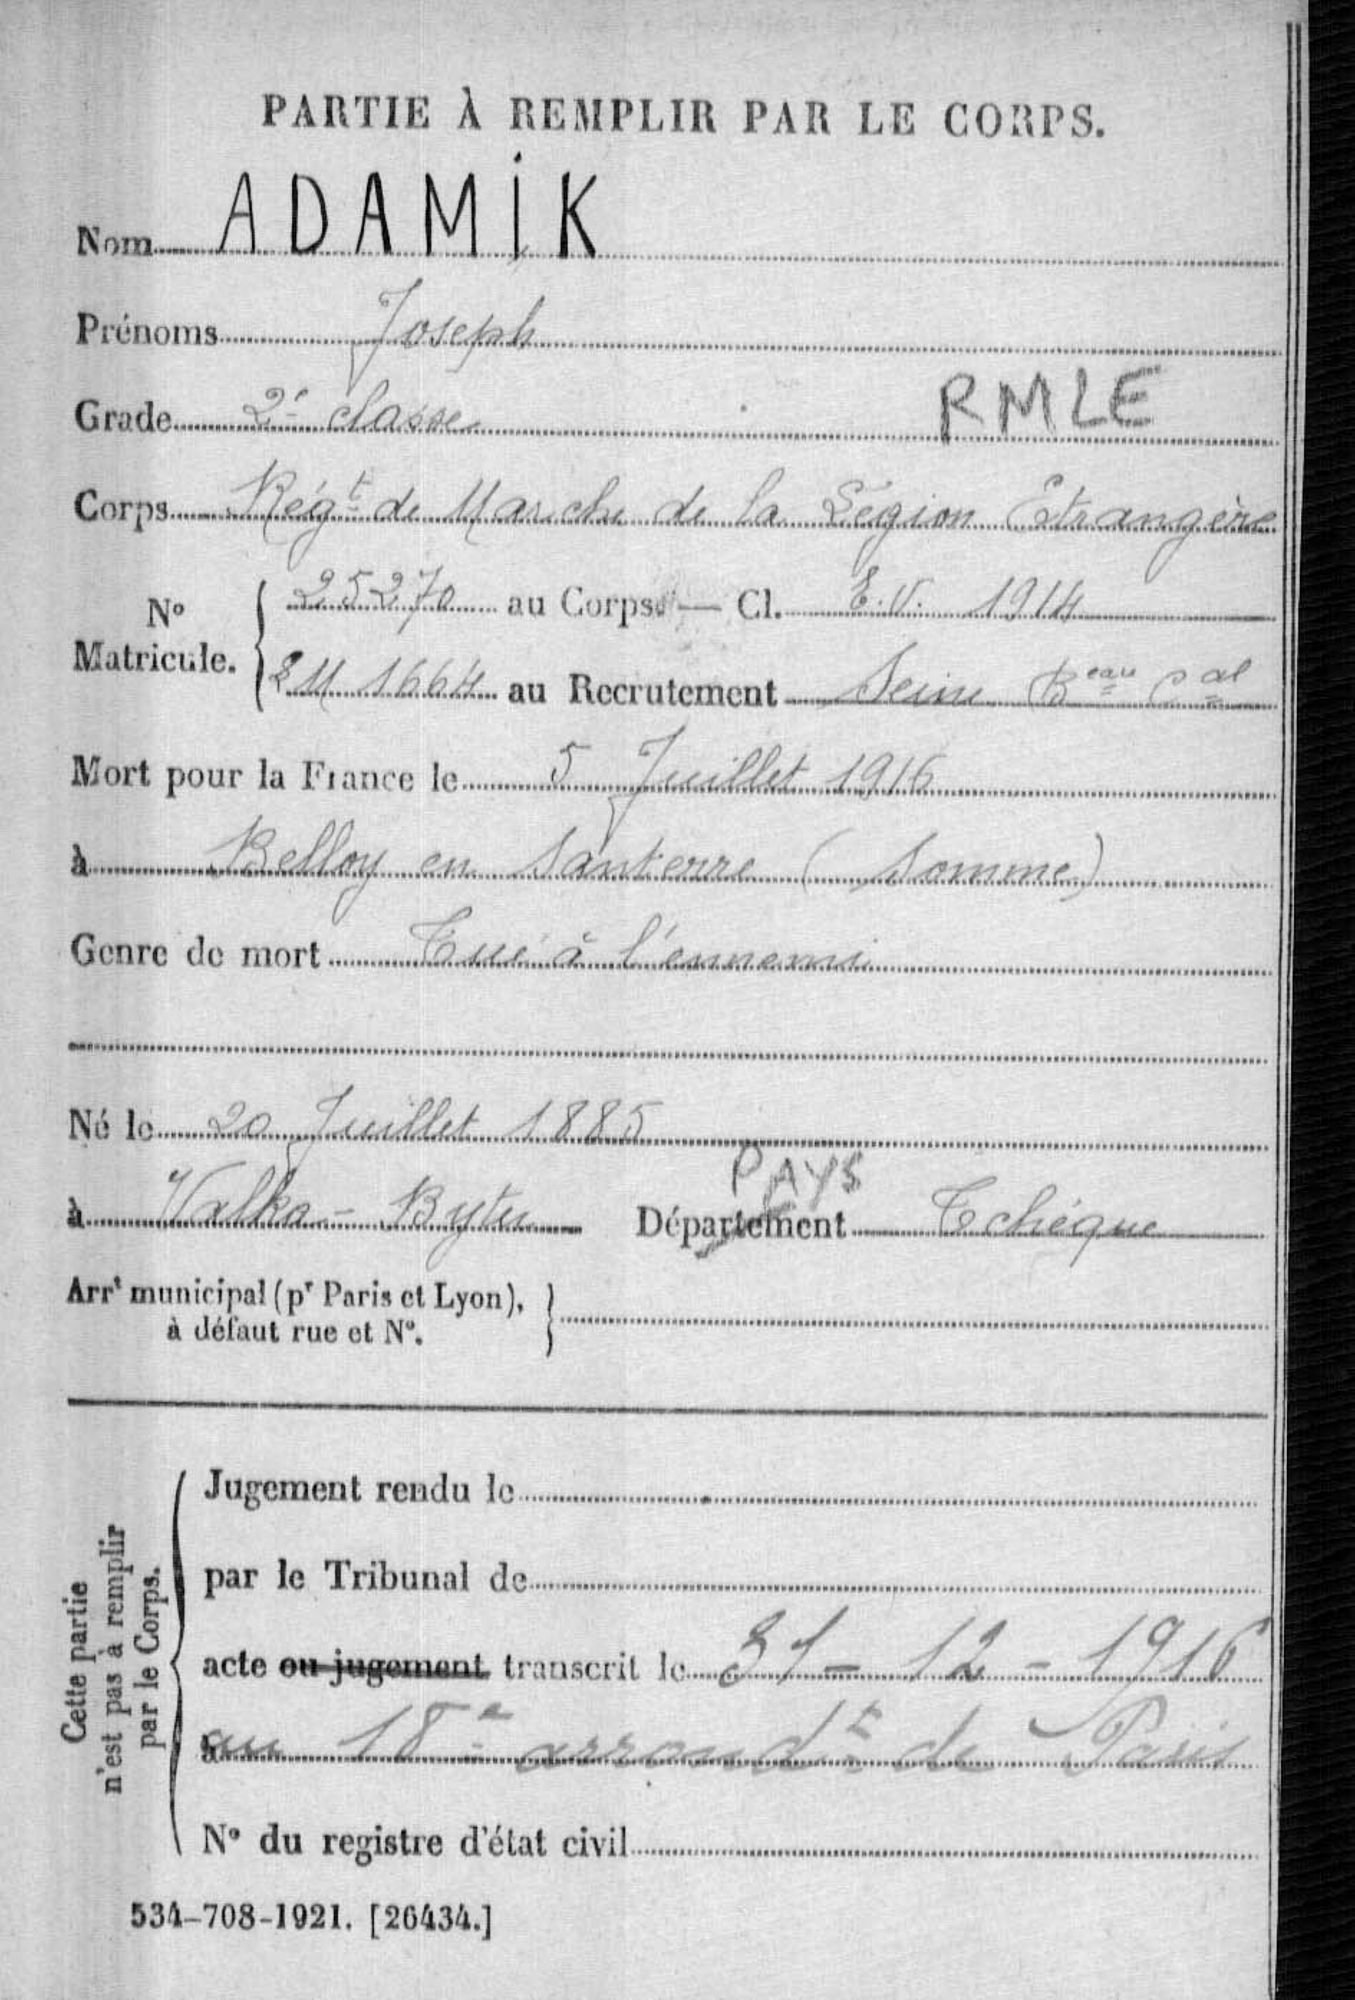 PARTIE À REMPLIR PAR LE CORPS.
Nom ADAMIK
Prénoms Joseph
Grade 2e classe RMLE
Corps Régt de Marche de la Légion Etrangère
No Matricule. { 25270 au Corps. — Cl. E.V. 1914
1664 au Recrutement Seine Beau Cal
Mort pour la France le 5 Juillet 1916
à Belloy en Santerre (Somme)
Genre de mort Tué à l'ennemi
Né le 20 Juillet 1885
PAYS
à Walka - Bytes Département Tchéque
Arrt municipal (pr Paris et Lyon), }
à défaut rue et No.
Cette partie
n'est pas à remplir
par le Corps.
Jugement rendu le
par le Tribunal de
acte ou jugement transcrit le 31 - 12 - 1916
au 18e arrondt de Paris
No du registre d'état civil
534-708-1921. [26434.]